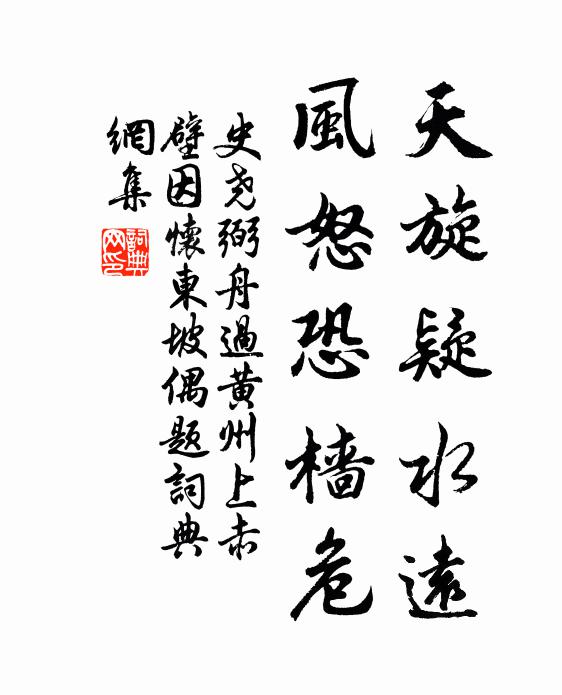 天旋疑水遠
風怒恐檣危
史堯弼舟過黃州上赤
壁因懷東坡偶題詞典
網集
詞典
网印